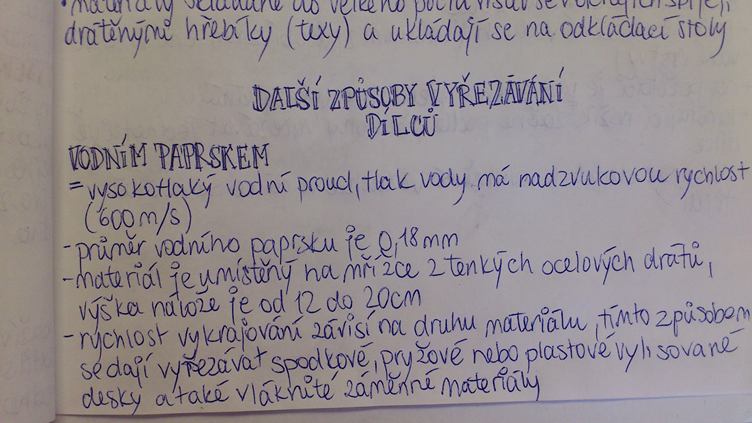 materiály skládané do velkého počtu vrstev se v okrajích spojí
drátěnými hřebíky (texy) a ukládají se na odkládací stoly
DALŠÍ ZPŮSOBY VYŘEZÁVÁNÍ
DÍLCŮ
VODNÍM PAPRSKEM
= vysokotlaký vodní proud, tlak vody má nadzvukovou rychlost
(600 m/s)
- průměr vodního paprsku je 0,18 mm
- materiál je umístěný na mřížce z tenkých ocelových drátů,
výška nálože je od 12 do 20cm
- rychlost vykrajování závisí na druhu materiálu, tímto způsobem
se dají vyřezávat spodkové, pryžové nebo plastové vylisované
desky a také vláknité záměnné materiály